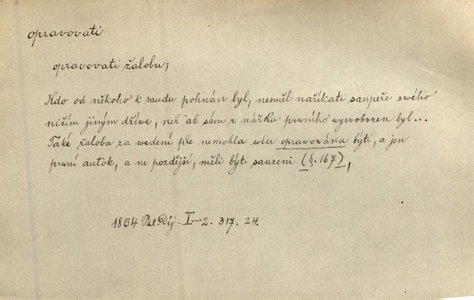 opravovati
opravovati žalobu;
Kdo od někoho k saudu pohnán byl, neměl naříkati saupeře svého
ničím jiným dříwe, než až sám z nářku prvního vyswobozen byl...
Také žaloba za wedení pře nemohla wíce opravována býti, a jen
první autok, a ne pozdější, měli býti sauzeni (§. 167),
1854 Pal. Děj. I–2. 317. 24.